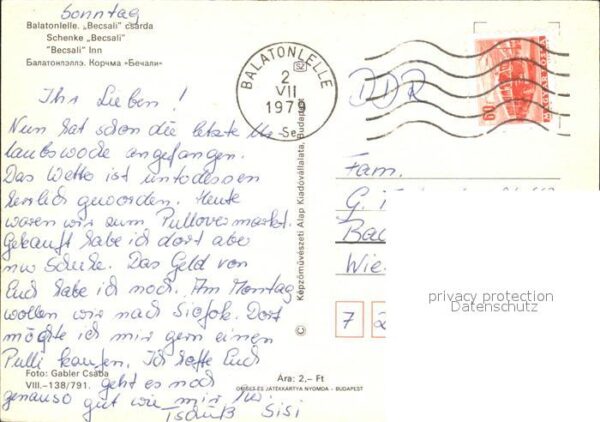 Sonntag
Balatonlelle. „Becsali" csárda
Schenke „Becsali"
"Becsali" Inn
Балатонлэллэ. Корчма «Бечали»
Ihr Lieben!
Nun hat schon die letzte Ur-
laubswoche angefangen.
Das Wetter ist unterdessen
herrlich geworden. Heute
waren wir zum Pullovermarkt.
Gekauft habe ich dort aber
nur Schuhe. Das Geld von
Euch habe ich noch. Am Montag
wollen wir nach Siofok. Dort
möchte ich mir gern einen
Pulli kaufen. Ich hoffe Euch
geht es noch
genauso gut wie mir hier.
Tschüß Sisi
Foto: Gabler Csaba
VIII.–138/791.
BALATONLELLE
2
VII
1979
Se
DDR
60
MAGYAR POSTA
Képzőművészeti Alap Kiadóvállalata, Budapest
Fam.
G.
Wie
7 2
privacy protection
Datenschutz
Ára: 2,– Ft
OFSZET-ÉS JÁTÉKKÁRTYA NYOMDA – BUDAPEST